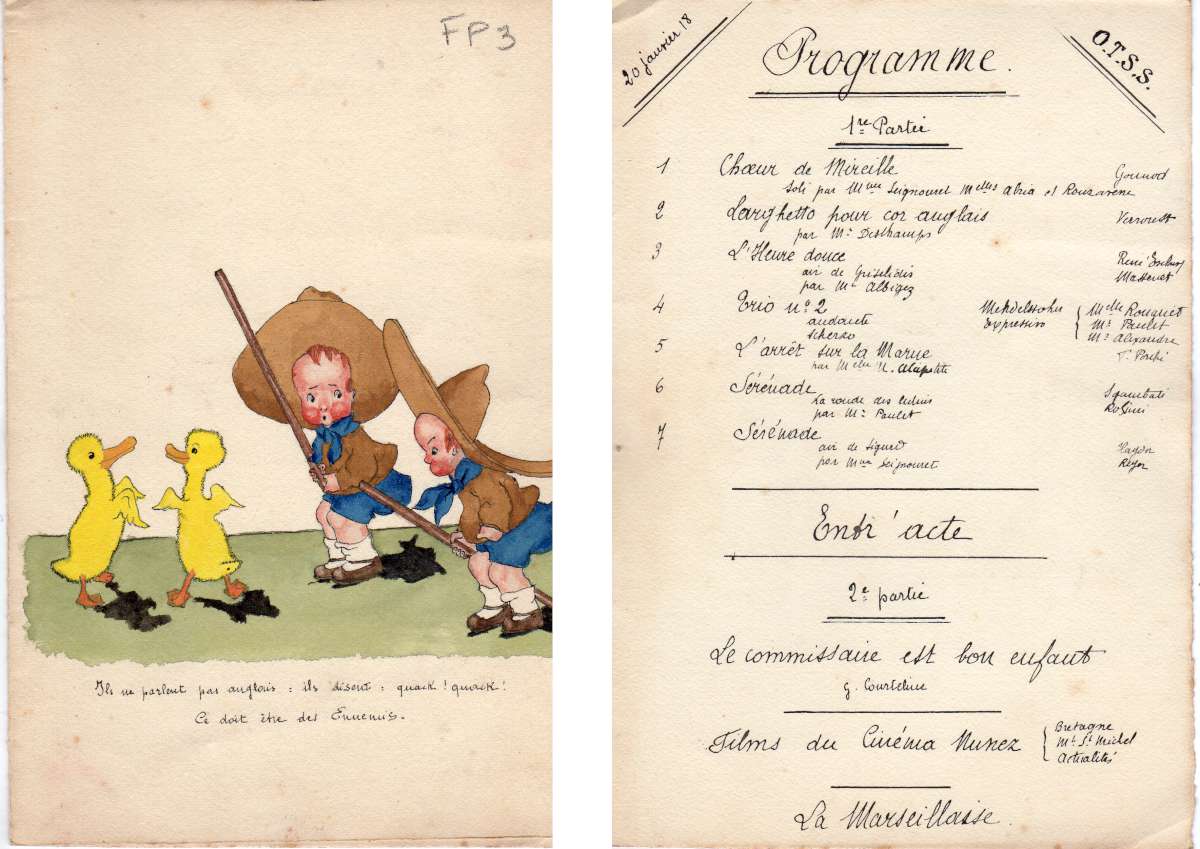 FP3
Ils ne parlent pas anglais : ils disent : quack ! quack !
Ce doit être des Ennemis.
20 janvier 18
Programme.
O.T.S.S.
1re Partie
1 Chœur de Mireille Gounod
Soli par Mme Seignouret Melles Abria et Rouzarene
2 Larghetto pour cor anglais Verroust
par Mr Deschamps
3 L'Heure douce René
air de Griselidis Massenet
par Mr Albigez
4 Trio no 2 Mendelssohn Melle Rouquet
andante Expressivo Mr Paulet
scherzo Mr Alexandre
5 L'arrêt sur la Marne
par Melle
6 Sérénade Sgambati
La ronde des lutins
par Mr Paulet
7 Sérénade Haydn
air de Sigurd Reyer
par Mme Seignouret
Entr'acte
2e partie
Le commissaire est bon enfant
G. Courteline
Films du Cinéma Nunez Bretagne
Mt St Michel
Actualités
La Marseillaise.